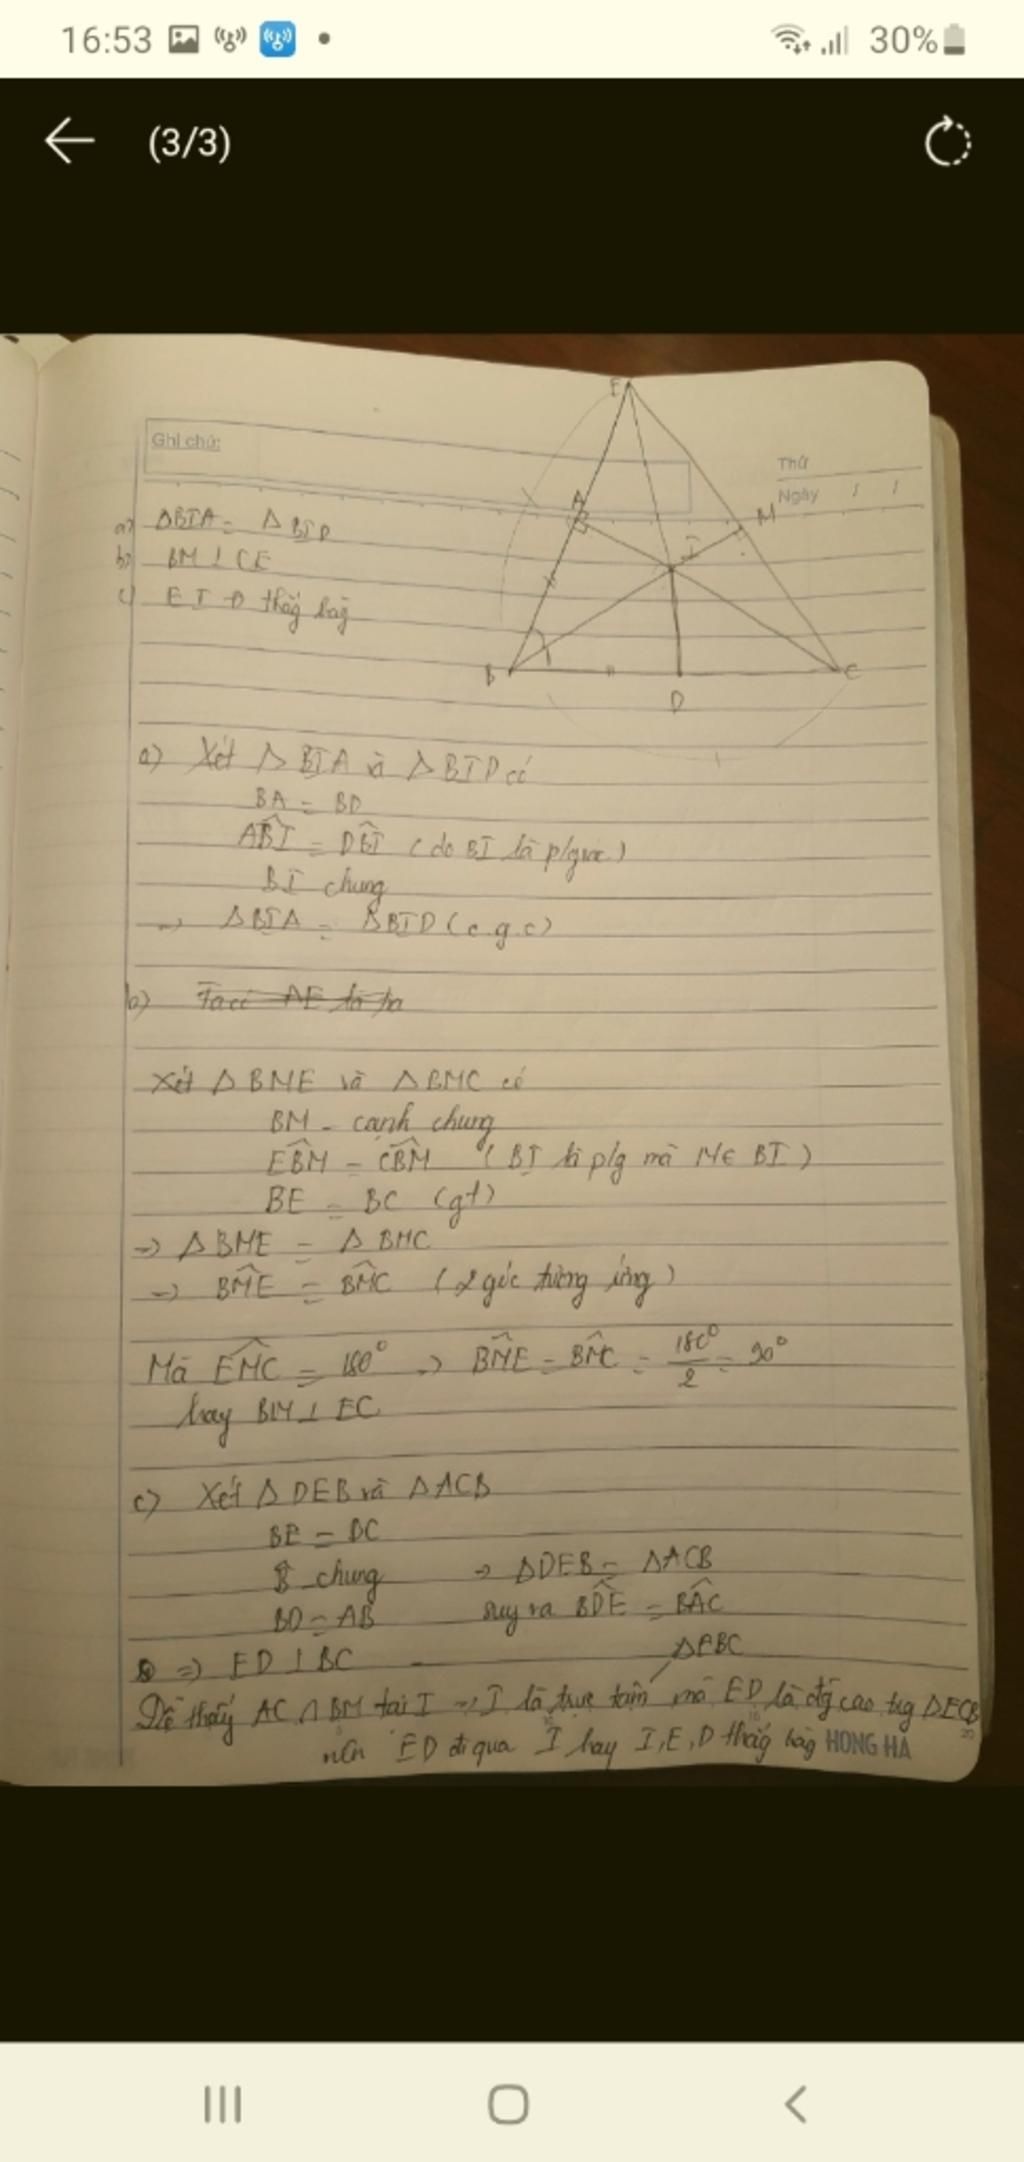 16:53 30%
(3/3)
Ghi chú:
Thứ
Ngày / /
E
A
M
I
B
D
C
a) ΔBIA = ΔBID
b) BM ⊥ CE
c) E I D thẳg hàg
a) Xét ΔBIA và ΔBID có
BA = BD
ABI = DBI (do BI là p/giác)
BI chung
→ ΔBIA = ΔBID (c.g.c)
b) Ta có AE là
Xét ΔBME và ΔBMC có
BM - cạnh chung
EBM = CBM (BI là p/g mà M∈ BI)
BE = BC (gt)
→ ΔBME = ΔBMC
→ BME = BMC (2 góc tương ứng)
Mà EMC = 180° → BME = BMC = 180°/2 = 90°
hay BM ⊥ EC
c) Xét ΔDEB và ΔACB
BE = BC
B chung → ΔDEB = ΔACB
BD = AB suy ra BDE = BAC
=> ED ⊥ BC
ΔEBC
Dễ thấy AC ∩ BM tại I → I là trực tâm mà ED là đg cao trg ΔECB
nên ED đi qua I hay I, E, D thẳg hàg HONG HA